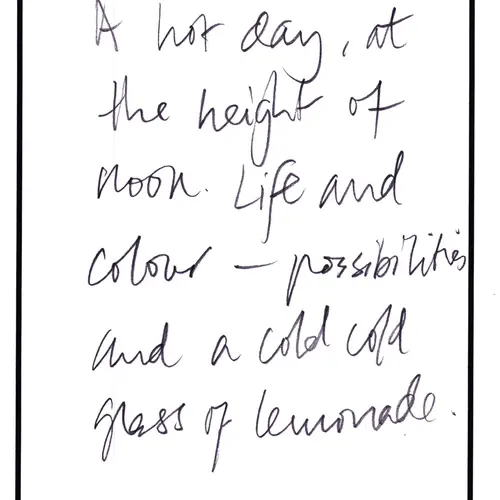 A hot day, at
the height of
noon. Life and
colour – possibilities
and a cold cold
glass of lemonade.